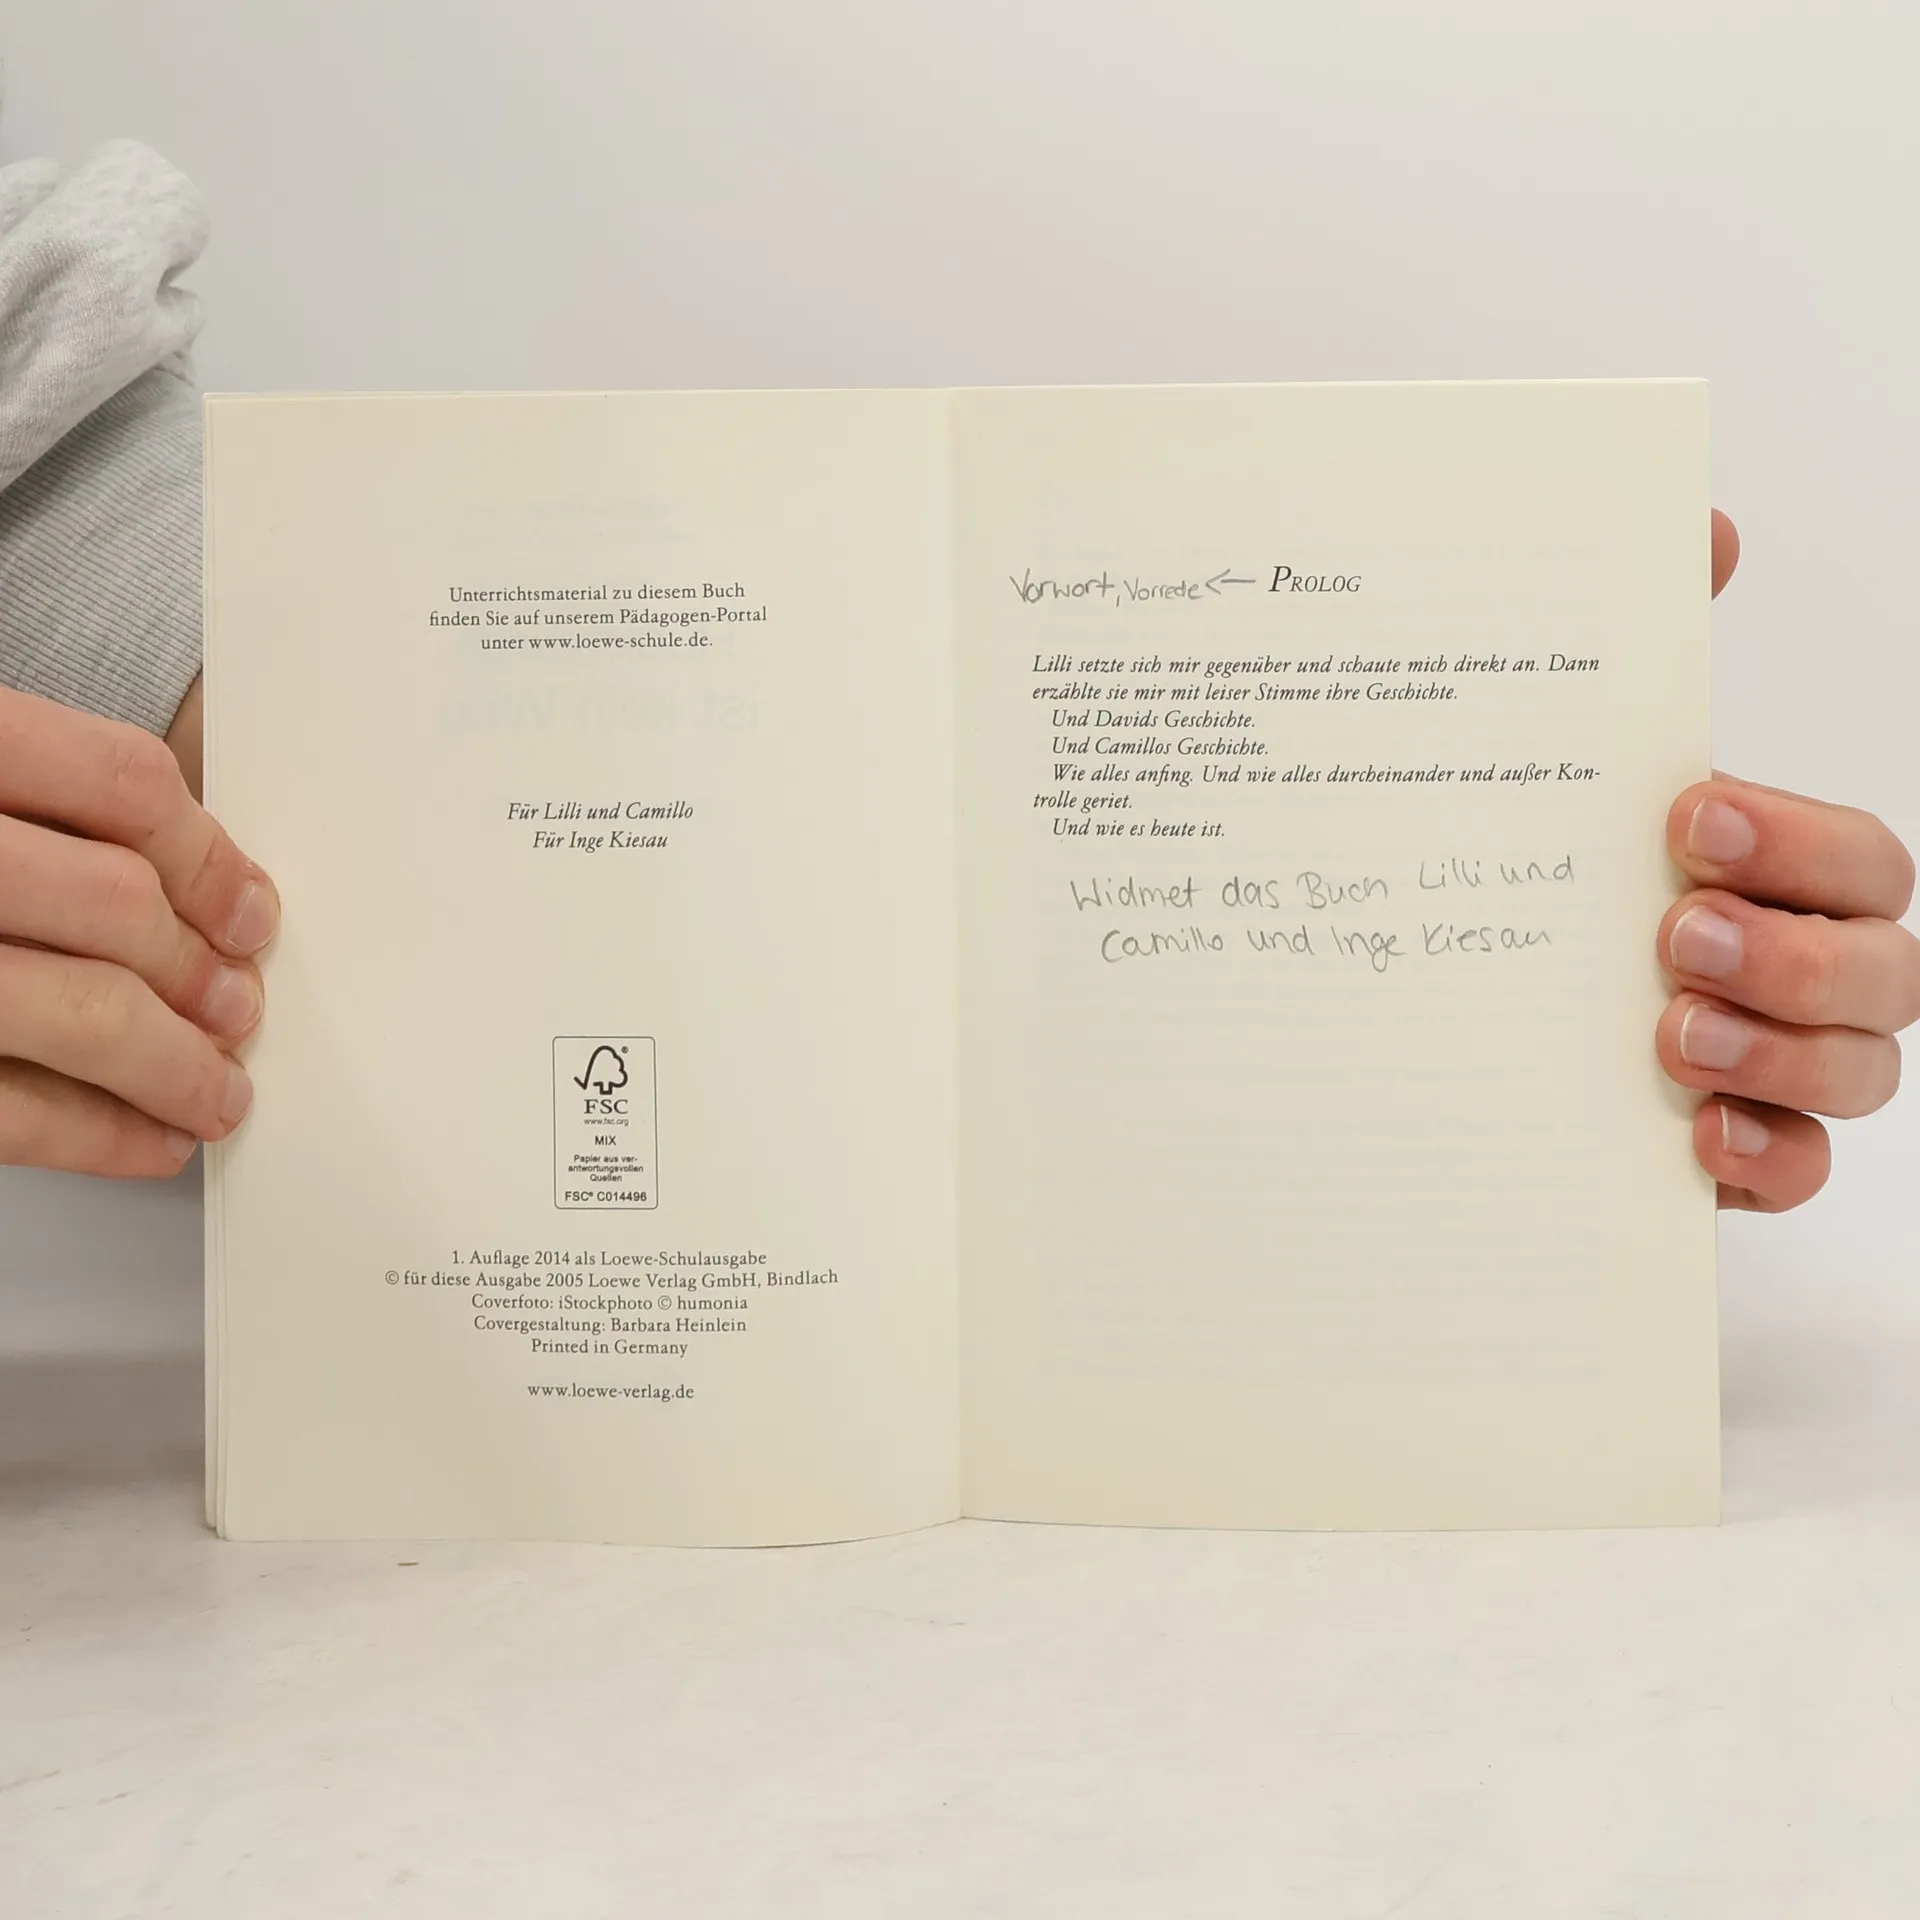 Unterrichtsmaterial zu diesem Buch
finden Sie auf unserem Pädagogen-Portal
unter www.loewe-schule.de.
Für Lilli und Camillo
Für Inge Kiesau
FSC®
www.fsc.org
MIX
Papier aus ver-
antwortungsvollen
Quellen
FSC® C014496
1. Auflage 2014 als Loewe-Schulausgabe
© für diese Ausgabe 2005 Loewe Verlag GmbH, Bindlach
Coverfoto: iStockphoto © humonia
Covergestaltung: Barbara Heinlein
Printed in Germany
www.loewe-verlag.de
Vorwort, Vorrede ← PROLOG
Lilli setzte sich mir gegenüber und schaute mich direkt an. Dann
erzählte sie mir mit leiser Stimme ihre Geschichte.
Und Davids Geschichte.
Und Camillos Geschichte.
Wie alles anfing. Und wie alles durcheinander und außer Kon-
trolle geriet.
Und wie es heute ist.
Widmet das Buch Lilli und
Camillo und Inge Kiesau